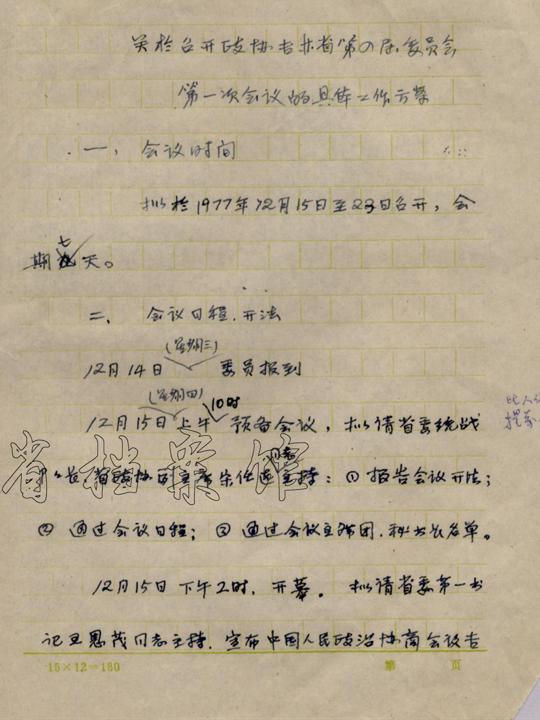 关於召开政协吉林省第四届委员会
第一次会议的具体工作方案
一、会议时间
拟於1977年12月15日至23日召开，会
期七天。
二、会议日程、开法
(星期三)
12月14日 委员报到
(星期四) 10时
12月15日上午 预备会议，拟请省委统战
部长、省政协副主席宋任远同志主持：①报告会议开法；
②通过会议日程；③通过会议主席团、秘书长名单。
12月15日下午2时，开幕。拟请省委第一书
记王恩茂同志主持，宣布中国人民政治协商会议吉
15×12=180 第 页
省档案馆